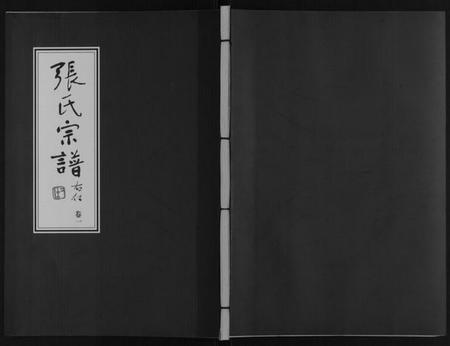 張氏宗譜
右任
卷一